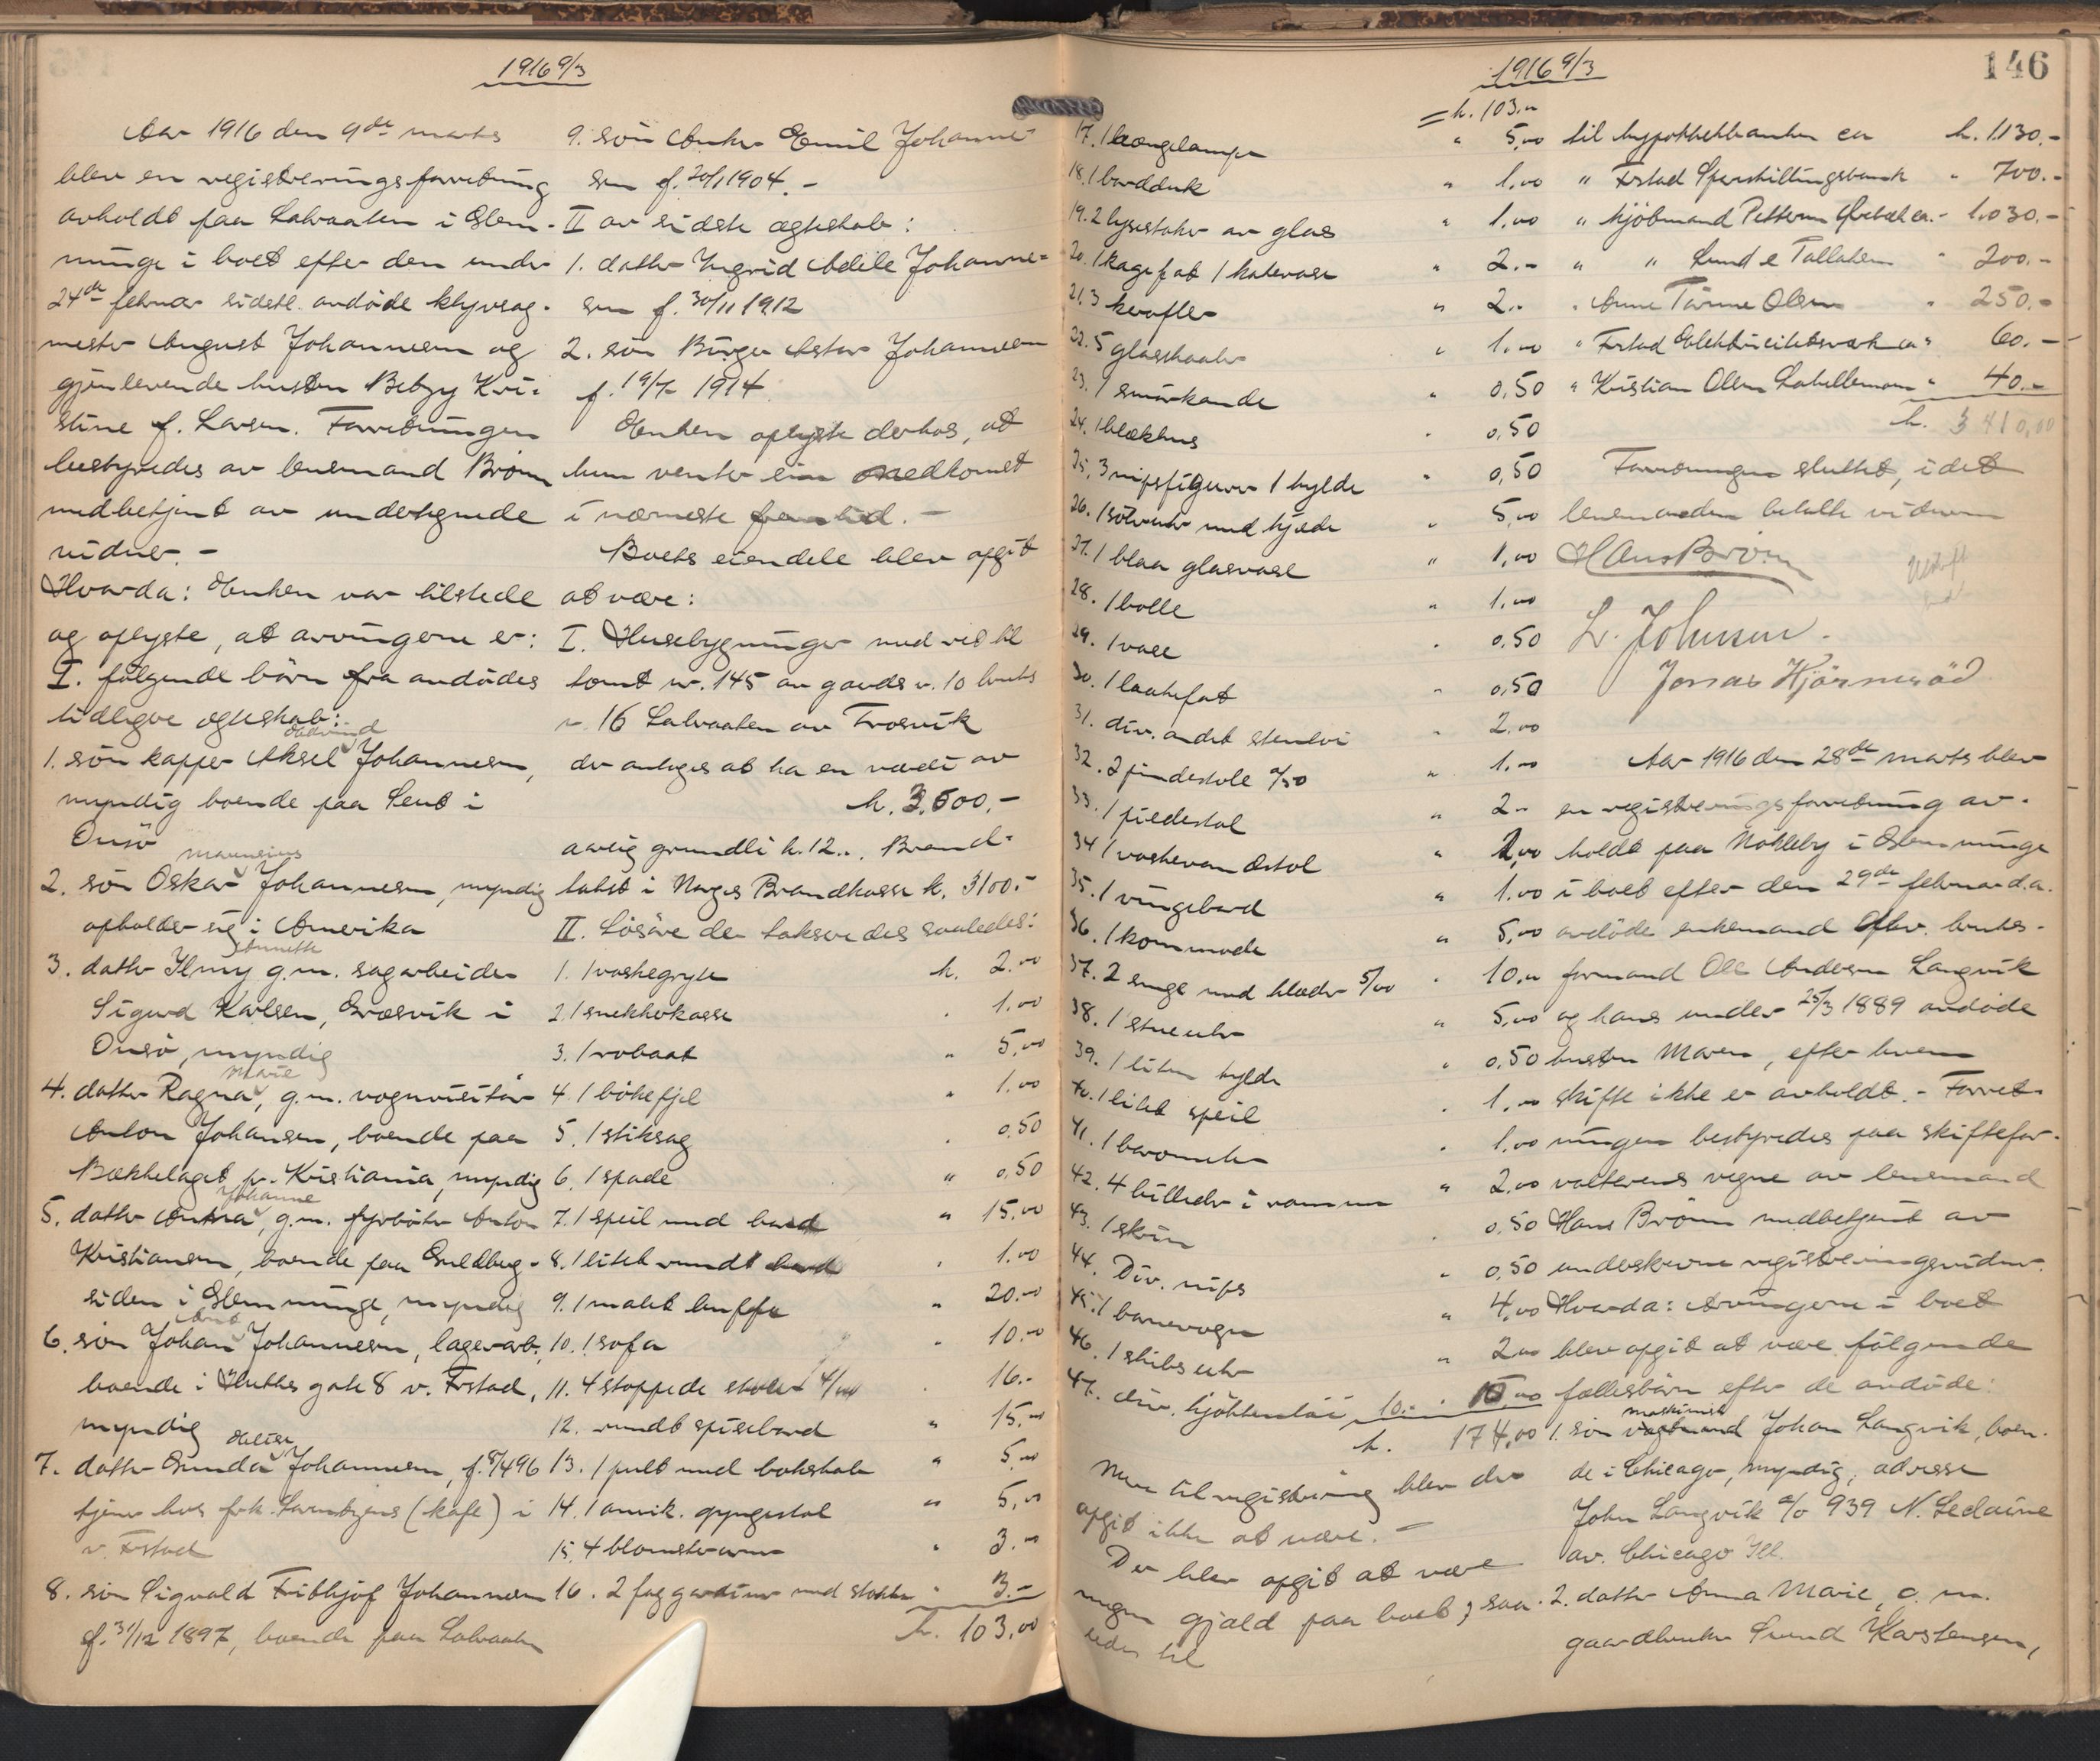 1916 9/3
Aar 1916 den 9de marts
blev en registreringsforretning
avholdt paa Lalvaaten i Glem-
minge i boet efter den under
24de februar sidstl. avdöde klyvsag-
mester August Johannesen og
gjenlevende hustru Betzy Kri-
stine f. Larsen. Forretningen
bestyredes av lensmand Brönn
medbetjent av undertegnede
vidner. -
Hvorda: Enken var tilstede
og oplyste, at arvingerne er:
I. følgende börn fra avdödes
tidligere egteskab:
1. sön kapper Aksel Johannesen,
myndig boende paa Lent i
Onsö
mauneius
2. sön Oskar Johannesen, myndig
opholder sig i Amerika
Annette
3. datter Ilmy g.m. sagarbeider
Sigurd Karlsen, Græsvik i
Onsö, myndig
Marie
4. datter Ragna, g.m. vognvisitör
Anton Johansen, boende paa
Bækkelaget pr. Kristiania, myndig
Johanne
5. datter Anna, g.m. fyrböter Anton
Kristiansen, boende paa Guldberg-
siden i Glemminge, myndig
6. sön Johan Johannesen, lagerarb.,
boende i Huthes gate 8 v. Frstad,
myndig
7. datter Gunda Johannesen, f. 8/4 96
tjener hos frk. (kafe) i
v. Frstad
8. sön Sigvald Frithjof Johannesen
f. 31/12 1897, boende paa Lalvaaten
9. sön Anker Emil Johanne-
sen f. 20/1 1904. -
II av sidste egteskab:
1. datter Ingrid Adele Johanne-
sen f. 30/11 1912
2. sön Birger Astor Johannesen
f. 19/7 1914.
Enken oplyste derhos, at
hun venter sin nedkomst
i nærmeste fremtid. -
Boets eiendele blev opgit
at være:
I. Husebygninger med ret til
tomt nr. 145 av gaards n. 10 bruks
n. 16 Lalvaaten av Trosvik
der antages at ha en værdi av
k. 3.500,-
aarlig grundlei k. 12.-. Brand-
takst i Norges Brandkasse k. 3100.-
II. Lösöre der takseredes saaledes:
1. 1 vaskegryte k. 2.00
2. 1 snekkekasse " 1.00
3. 1 robaat " 5,00
4. 1 bökefjel " 1.00
5. 1 stiksag " 0,50
6. 1 spade " 0,50
7. 1 speil med bord " 15,00
8. 1 litet rundt bord " 1.00
9. 1 malet buffe " 20.00
10. 1 sofa " 10.00
11. 4 stoppede stoler 4/00 " 16.-
12. rundt spisebord " 15,00
13. 1 pult med bokskab " 5,00
14. 1 amrik. gyngestol " 5,00
15. 4 blomsterurner " 3.00
16. 2 fag gardiner med stokker " 3.-
k. 103,00
1916 9/3
146
= k. 103.00
17. 1 hængelampe " 5,00
18. 1 bordduk " 1,00
19. 2 lysestaker av glas " 1,00
20. 1 kagefat 1 kakevase " 2.-
21. 3 karafler " 2.-
22. 5 glasskaaler " 1.00
23. 1 smörkande " 0,50
24. 1 blækhus " 0,50
25. 3 nipsfigurer 1 hylde " 0,50
26. 1 sölvuhr med kjede " 5,00
27. 1 blaa glasvase " 1,00
28. 1 bolle " 1,00
29. 1 vase " 0,50
30. 1 kakefat " 0,50
31. div. andet stentöi " 2.00
32. 2 pindestole a/50 " 1.00
33. 1 piedestal " 2.-
34. 1 vaskevandstol " 1,00
35. 1 vingebord " 1.00
36. 1 kommode " 5,00
37. 2 senge med klæder 5/00 " 10.00
38. 1 stueuhr " 5,00
39. 1 liten hylde " 0,50
40. 1 litet speil " 1.00
41. 1 barometer " 1.00
42. 4 billeder i rammer " 2.00
43. 1 skrin " 0,50
44. Div. nips " 0,50
45. 1 barnevogn " 4,00
46. 1 skibsuhr " 2.00
47. div. kjökkentöi 10.- " 10,00
k. 174,00
Mere til registrering blev der
opgit ikke at være. -
Der blev opgit at være
megen gjæld paa boet, saa-
ledes til
til hypotekbanken ca k. 1130.-
" Frstad Sparskillingsbank " 700.-
" kjöbmand Pettersen ca. - 1.030.-
" " Lunde Tallaken " 200.-
" Anne Tårine Olsen " 250.-
" Frstad Elektricitetsverk ca " 60.-
" Kristian Olsen Labelleman " 40.-
k. 3410,00
Forretningen sluttet, idet
lensmanden betalte vidnerne
Hans Brönn
L. Johnsen.
Jonas Hjörnesöd
Aar 1916 den 28de marts blev
en registreringsforretning av-
holdt paa Nökleby i Glemminge
i boet efter den 29de februar d.a.
avdöde enkemand forhv. bruks-
formand Ole Andersen Langvik
og hans under 25/3 1889 avdöde
hustru Maren, efter hvem
skifte ikke er avholdt. - Forret-
ningen bestyredes paa skiftefor-
valterens vegne av lensmand
Hans Brönn medbetjent av
underskrevne registreringsvidner.
Hvorda: Arvingerne i boet
blev opgit at være følgende
fællesbörn efter de avdöde:
maskinist
1. sön Johan Langvik, boen-
de i Chicago, myndig, adresse
John Langvik a/o 939 N. Leclaire
av. Chicago Ill.
2. datter Anna Marie, g. m.
gaardbruker Svend Karstensen,